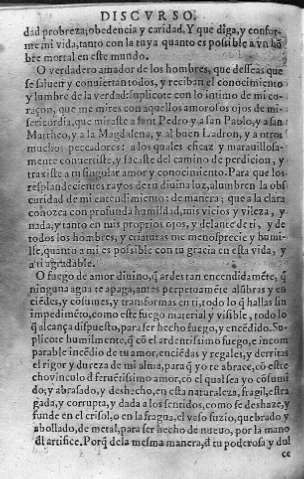 DISCVRSO.
dad probreza, obedencia y caridad. Y que diga, y confor-
me mi vida, tanto con la tuya quanto es possible a vn hō
bre mortal en este mundo.
O verdadero amador de los hombres, que desseas que
se saluen y conuiertan todos, y reciban el conocimiento
y lumbre de la verdad: suplicote con lo intimo de mi co-
raçon, que me mires con aquellos amorosos ojos de mi-
sericordia, que miraste a sant Pedro y a san Pablo, y a san
Mattheo, y a la Magdalena, y al buen Ladron, y a otros
muchos peccadores: a los quales eficaz y marauillosa-
mente conuertiste, y sacaste del camino de perdicion, y
traxiste a tu singular amor y conocimiento. Para que los
resplandecientes rayos de tu diuina luz, alumbren la obs
curidad de mi entendimiento: de manera, que a la clara
conozca con profunda humildad, mis vicios y vileza, y
nada, y tanto en mis proprios ojos, y delante de ti, y de
todos los hombres, y criaturas me menosprecie y humi-
lle, quanto a mi es possible con tu gracia en esta vida, y
a ti agradable.
O fuego de amor diuino, q̃ ardes tan encendidamēte, q̃
ninguna agua te apaga, antes perpetuamēte alūbras y en
ciēdes, y cōsumes, y transformas en ti, todo lo q̃ hallas sin
impedimēto, como este fuego material y visible, todo lo
q̃ alcança dispuesto, para ser hecho fuego, y encēdido. Su-
plicote humilmente, q̃ cō el ardentissimo fuego, e incom
parable incēdio de tu amor, enciēdas y regales, y derritas
el rigor y dureza de mi alma, para q̃ yo te abrace, cō este
echo vinculo d feruētissimo amor, cō el qual sea yo cōsumi
do, y abrasado, y deshecho, en esta naturaleza, fragil, estra
gada, y corrupta, y dada a los sentidos, como se deshaze, y
funde en el crisol, o en la fragua, el vaso suzio, quebrado y
abollado, de metal, para ser hecho de nueuo, por la mano
dl artifice. Porq̃ dela mesma manera, d tu poderosa y dul
ce